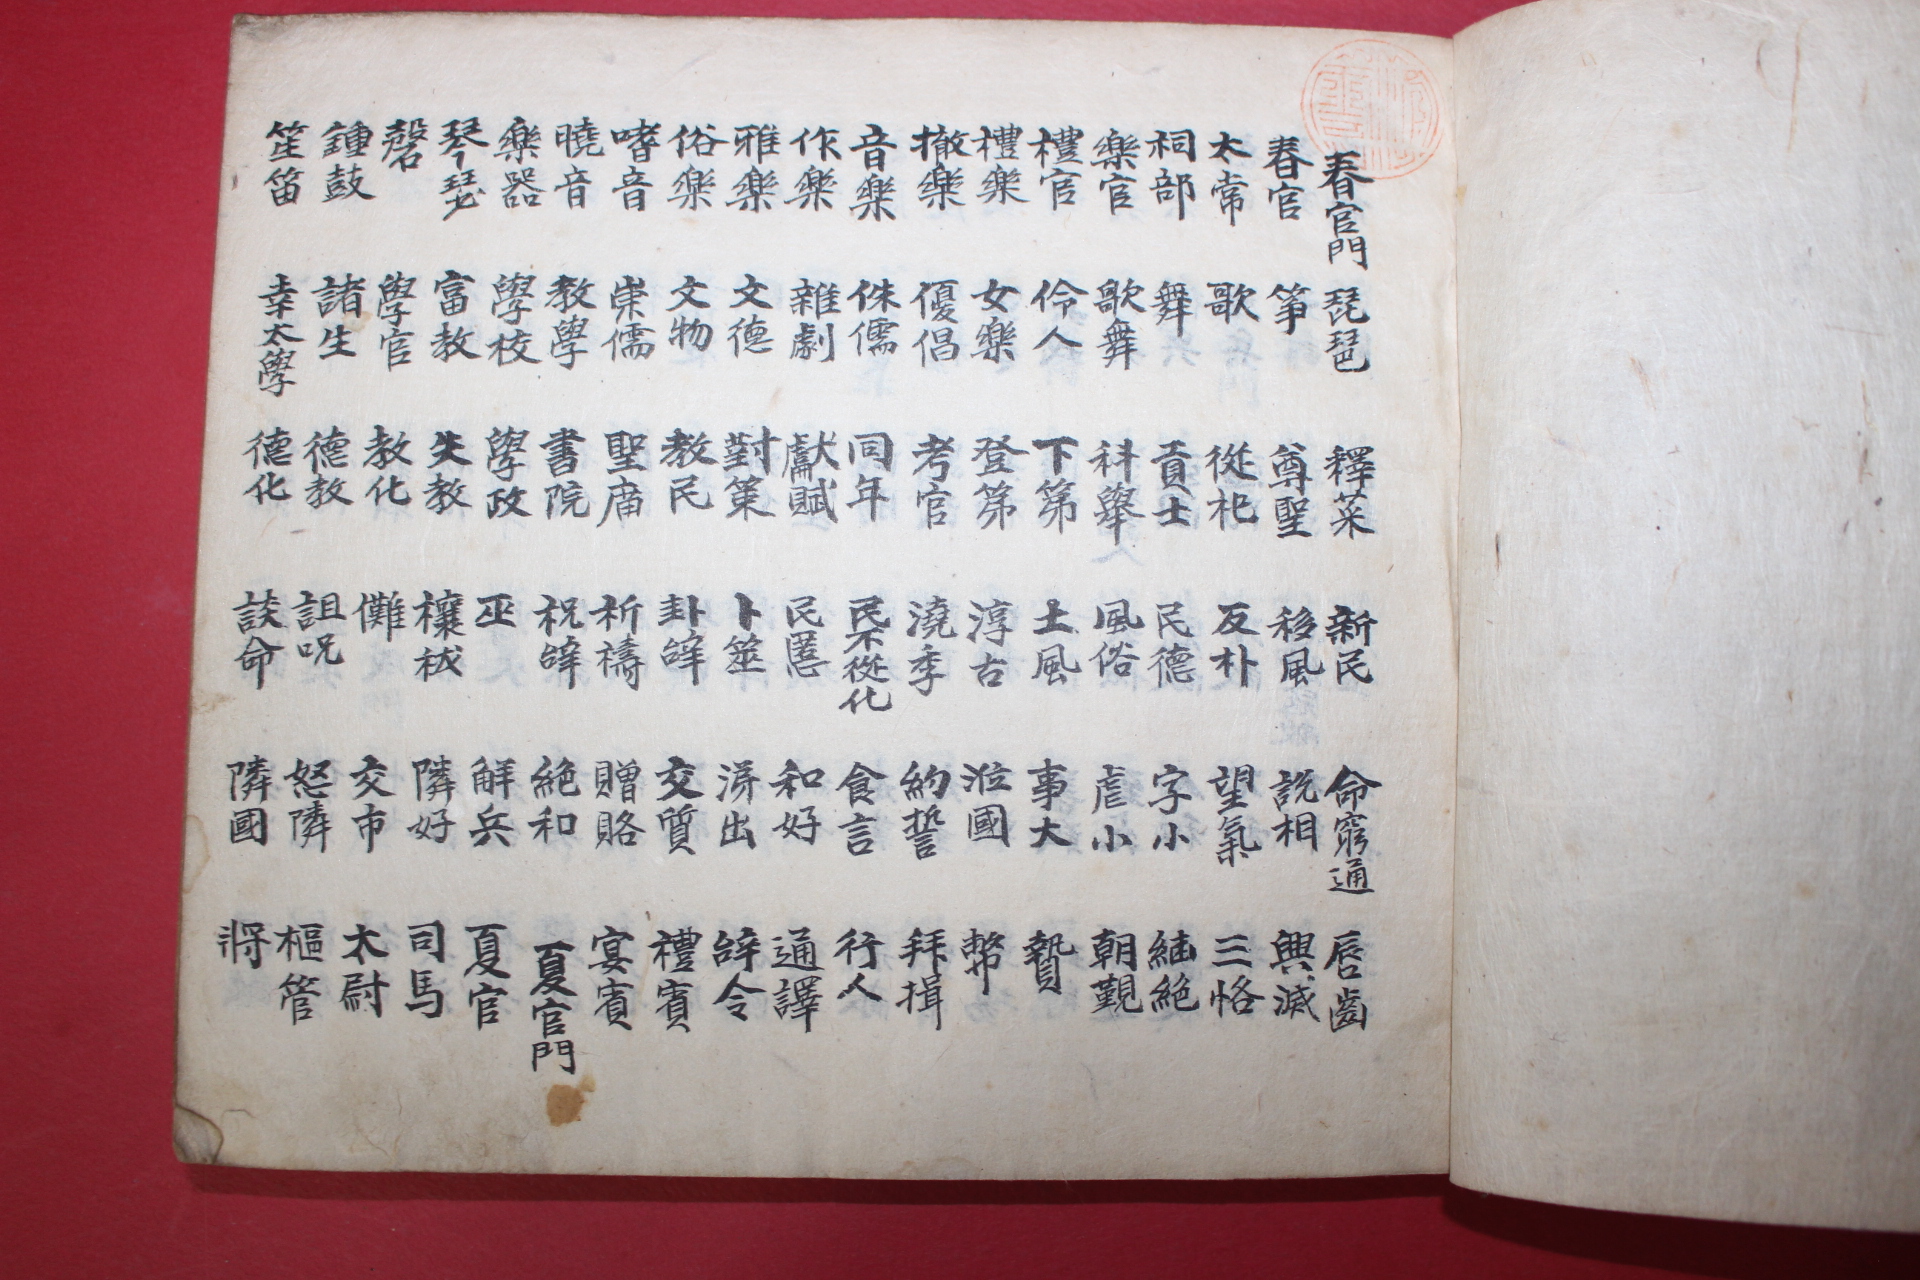 春官門
春官
太常
祠部
樂官
禮官
禮樂
撤樂
音樂
作樂
雅樂
俗樂
嗜音
曉音
樂器
琴瑟
磬
鍾鼓
笙笛
琵琶
箏
歌
舞
歌舞
伶人
女樂
優倡
侏儒
雜劇
文德
文物
崇儒
教學
學校
富教
學官
諸生
幸太學
釋菜
尊聖
從祀
貢士
科舉
下第
登第
考官
同年
獻賦
對策
教民
聖庙
書院
學政
失教
教化
德教
德化
新民
移風
反朴
民德
風俗
土風
淳古
澆季
民不從化
民慝
卜筮
卦辭
祈禱
祝辭
巫
禳祓
儺
詛呪
談命
命窮通
説相
望氣
字小
虐小
事大
涖國
約誓
食言
和好
出
交質
贈賂
絶和
解兵
隣好
交市
怒隣
隣國
唇齒
興滅
三恪
継絶
朝覲
贄
幣
拜揖
行人
通譯
辭令
禮賓
宴賓
夏官門
夏官
司馬
太尉
樞管
將